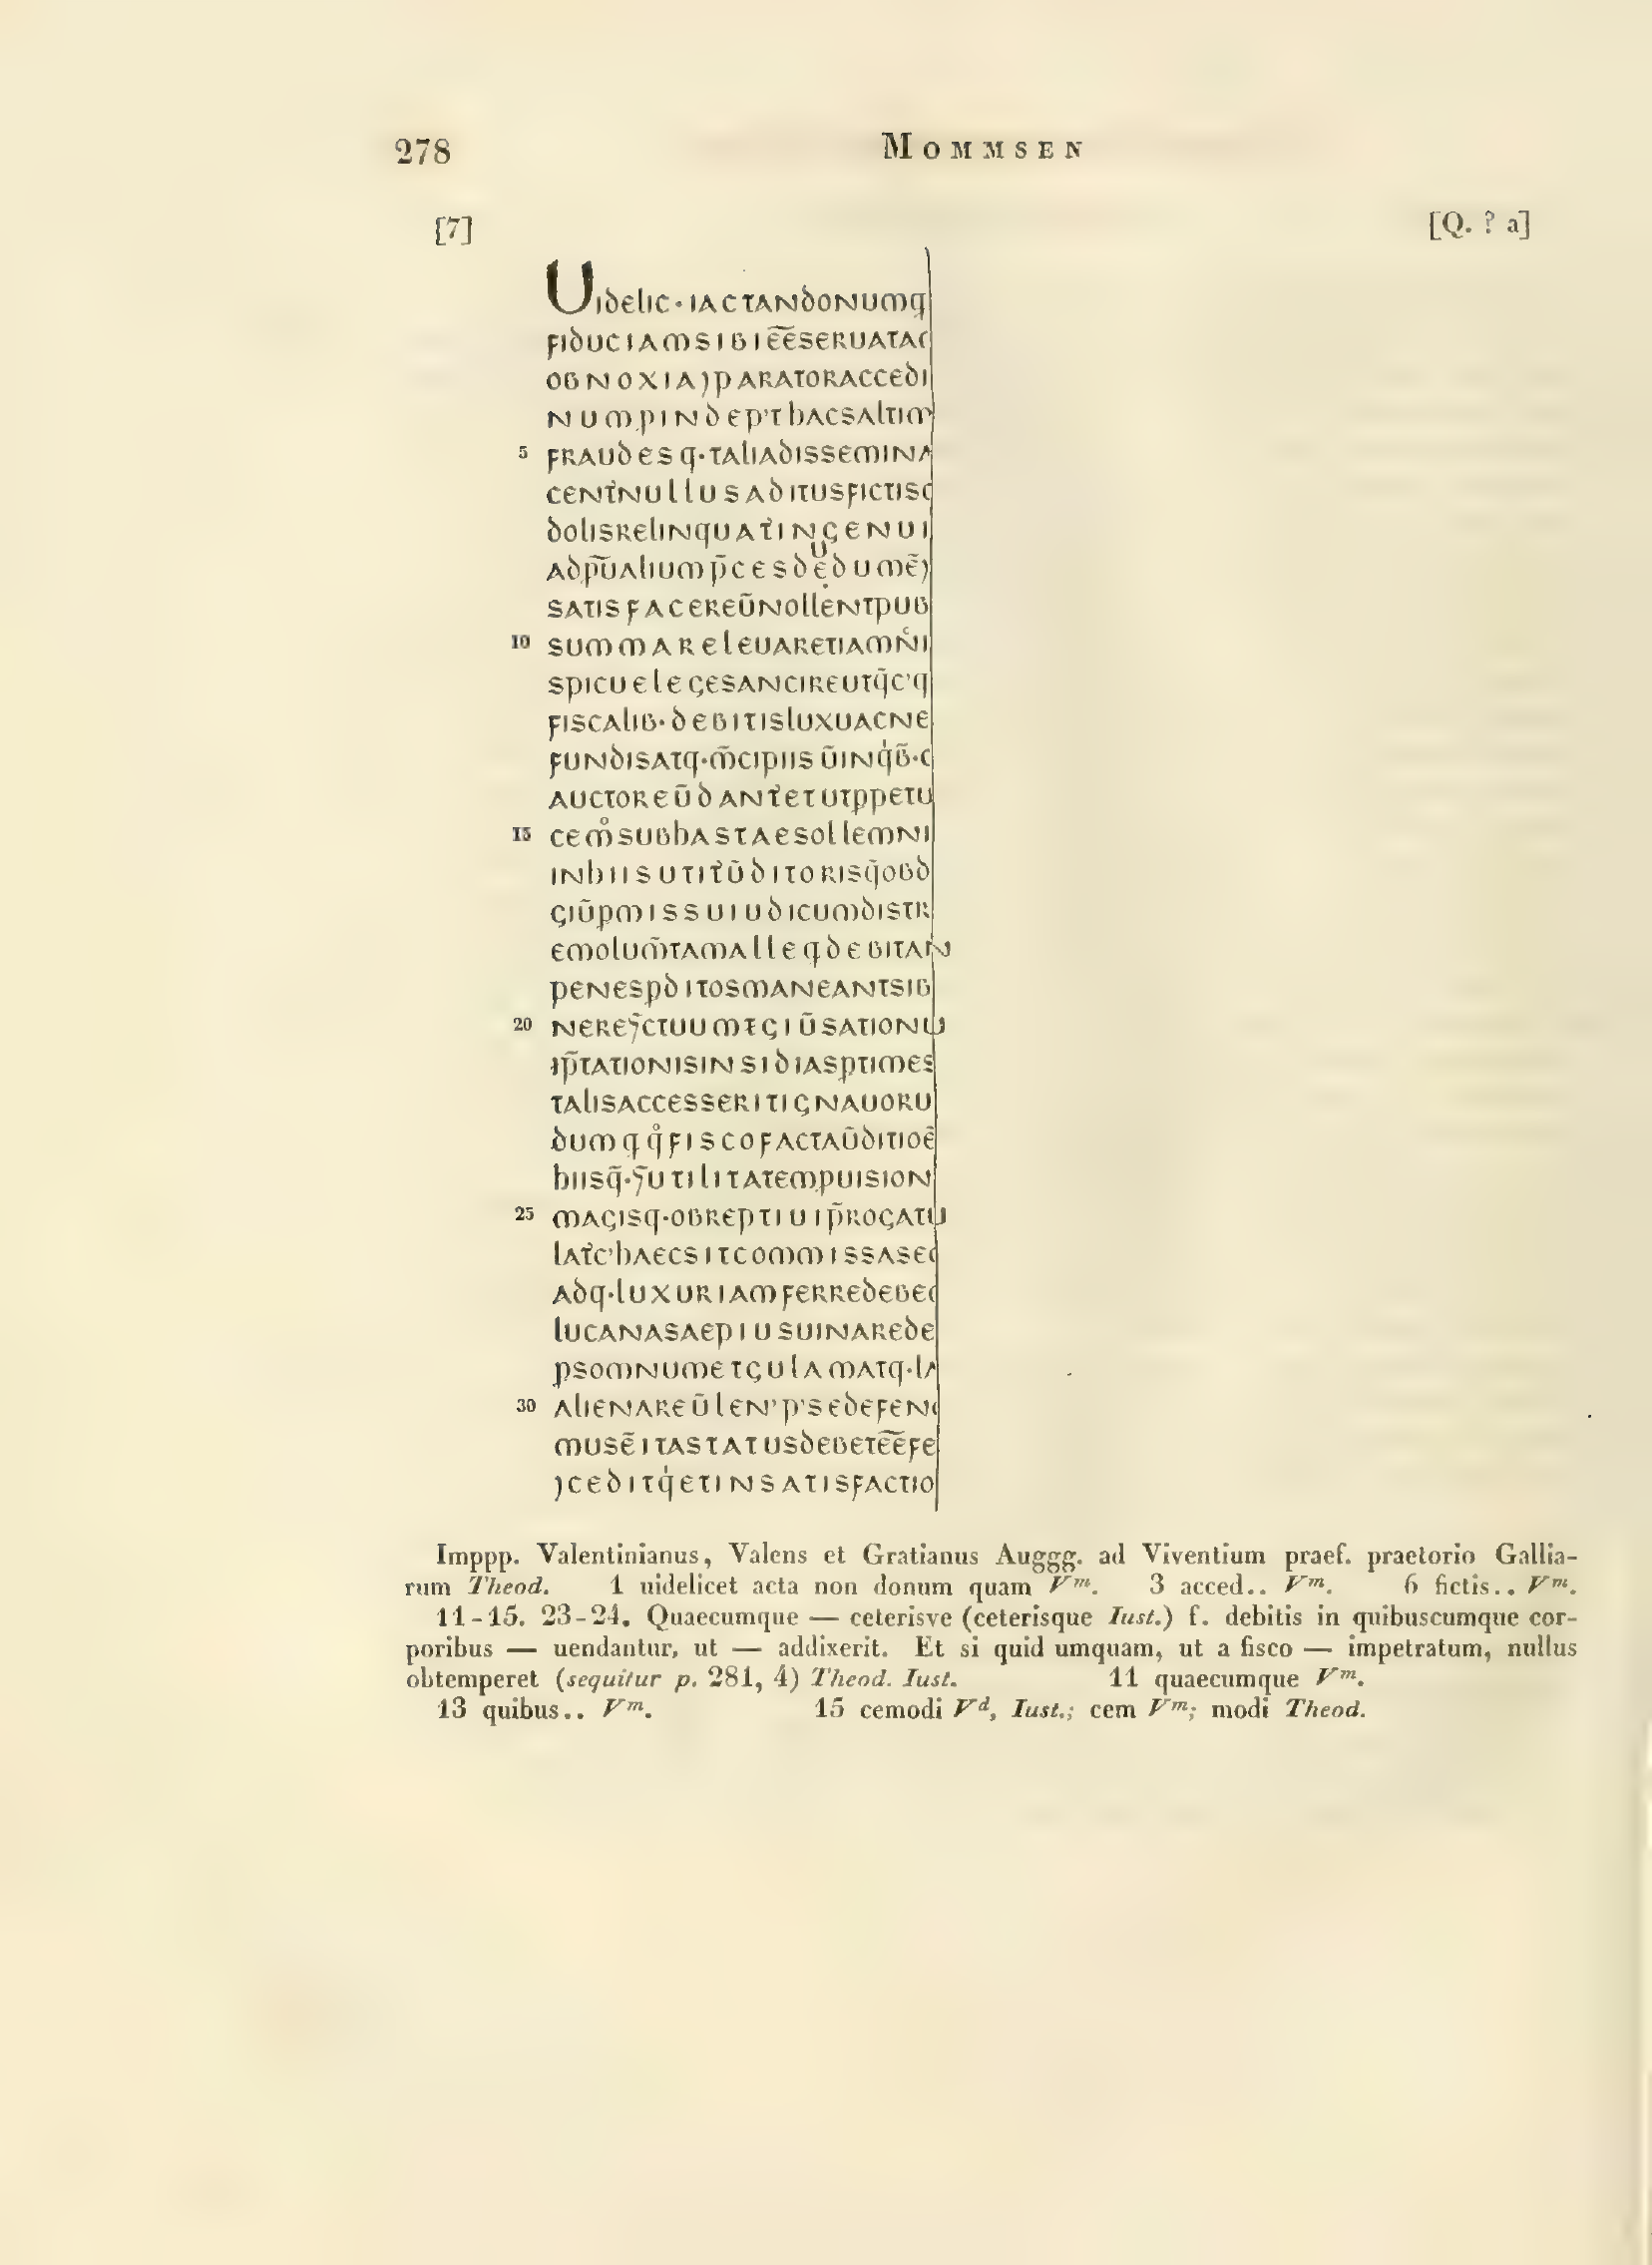 278 MOMMSEN
[7] [Q. ? a]
Uidelic·IACTANdONUmq
fIdUCIAmSIBIe̅e̅SERUATAC
OBNOXIAƆpARATORACCEdI
NUmpINdEp'ThACSAlTIm
5 fRAUdESq·TAlIAdISSEmINA
CENTNUllUSAdITUSfICTISC
dOlISRElINqUATINGENUI
AdpU̅AlIUmp̅CESdEdUmE̅Ɔ
SATISfACEREU̅NOllENTpUB
10 SUmmARElEUARETIAmNI
SpICUElEGESANCIREUTq̅C'q
fISCAlIB·dEBITISlUXUACNE
fUNdISATq·m̅CIpIISU̅INqB̅·C
AUCTOREU̅dANTETUTppETU
15 CEmSUBhASTAESOllEmNI
INhIISUTITU̅dITORISq̅OBd
GIU̅pmISSUIUdICUmdISTR
EmOlUm̅TAmAllEqdEBITAN
pENESpdITOSmANEANTSIB
20 NEREȷ̅CTUUmTGIU̅SATIONU
Ip̅TATIONISINSIdIASpTImES
TAlISACCESSERITIGNAUORU
dUmqqfISCOfACTAU̅dITIOE̅
hIISq̅·ȷ̅UTIlITATEmpUISION
25 mAGISq·OBREpTIUIp̅ROGATU
lATC'hAECSITCOmmISSASEC
Adq·lUXURIAmfERREdEBEC
lUCANASAEpIUSUINAREdE
pSOmNUmETGUlAmATq·lA
30 AlIENAREU̅lEN'p'SEdEfENC
mUSE̅ITASTATUSdEBETE̅E̅fE
ƆCEdITqETINSATISfACTIO
Imppp. Valentinianus, Valens et Gratianus Auggg. ad Viventium praef. praetorio Gallia-
rum Theod. 1 uidelicet acta non donum quam Vm. 3 acced.. Vm. 6 fictis.. Vm.
11-15. 23-24. Quaecumque — ceterisve (ceterisque Iust.) f. debitis in quibuscumque cor-
poribus — uendantur, ut — addixerit. Et si quid umquam, ut a fisco — impetratum, nullus
obtemperet (sequitur p. 281, 4) Theod. Iust. 11 quaecumque Vm.
13 quibus.. Vm. 15 cemodi Vd, Iust.; cem Vm; modi Theod.